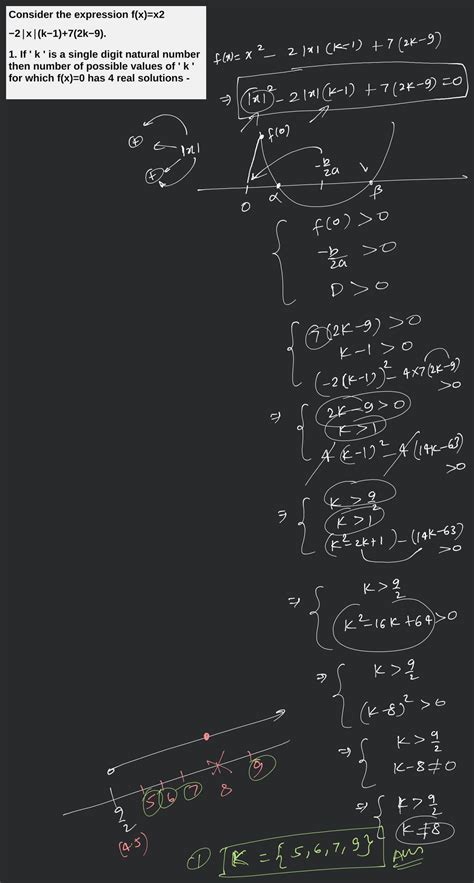 Consider the expression f(x)=x2
−2|x|(k−1)+7(2k−9).
1. If ' k ' is a single digit natural number
then number of possible values of ' k '
for which f(x)=0 has 4 real solutions -
f(x) = x² - 2|x|(k-1) + 7(2k-9)
⇒ |x|² - 2|x|(k-1) + 7(2k-9) = 0
+
|x|
+
f(0)
-b/2a
0 α β
f(0) > 0
-b/2a > 0
D > 0
7(2k-9) > 0
k-1 > 0
(-2(k-1))² - 4×7(2k-9) > 0
⇒ 2k-9 > 0
k > 1
4(k-1)² - 4(14k-63) > 0
⇒ k > 9/2
k > 1
(k²-2k+1) - (14k-63) > 0
⇒ k > 9/2
k² - 16k + 64 > 0
⇒ k > 9/2
(k-8)² > 0
⇒ k > 9/2
k-8 ≠ 0
⇒ k > 9/2
k ≠ 8
9/2 5 6 7 8 9
(4.5)
K = {5, 6, 7, 9} Ans